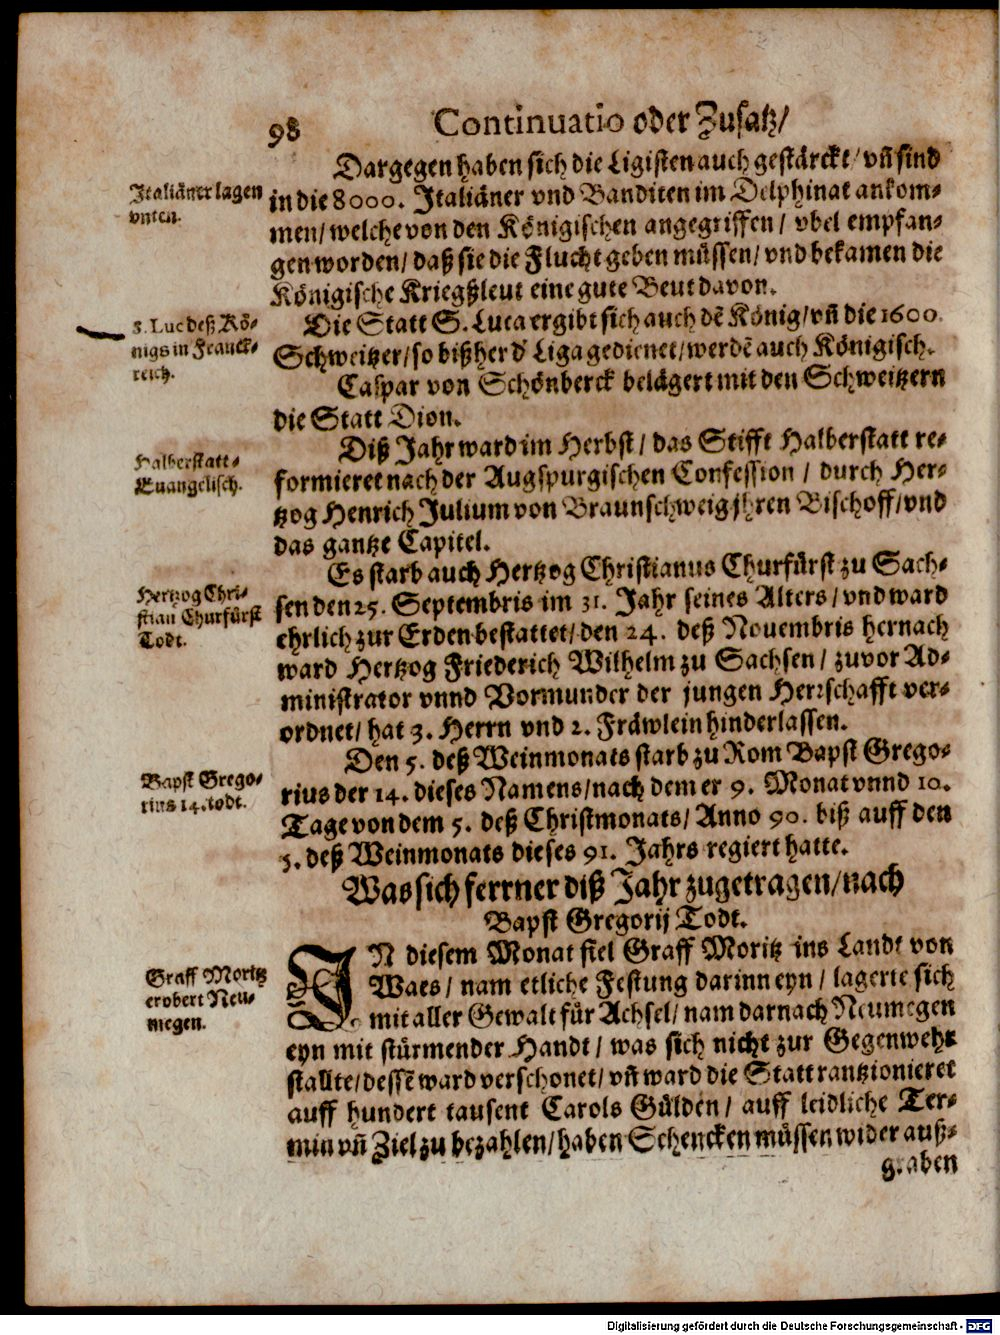 98
Continuatio oder Zusatz/
Dargegen haben sich die Ligisten auch gestärckt/ vñ sind
in die 8000. Italiäner vnd Banditen im Delphinat ankom-
men/ welche von den Königischen angegriffen/ vbel empfan-
gen worden/ daß sie die Flucht geben müssen/ vnd bekamen die
Königische Kriegßleut eine gute Beut davon.
Italiäner lagen
vnten.
Die Statt S. Luca ergibt sich auch dē König/ vñ die 1600
Schweitzer/ so bißher d' Liga gedienet/ werdē auch Königisch.
S. Luc deß Kö-
nigs in Franck-
reich.
Caspar von Schönberck belägert mit den Schweitzern
die Statt Dion.
Diß Jahr ward im Herbst/ das Stifft Halberstatt re-
formieret nach der Augspurgischen Confession/ durch Her-
tzog Henrich Julium von Braunschweig jhren Bischoff/ vnd
das gantze Capitel.
Halberstatt-
Euangelisch.
Es starb auch Hertzog Christianus Churfürst zu Sach-
sen den 25. Septembris im 31. Jahr seines Alters/ vnd ward
ehrlich zur Erden bestattet/ den 24. deß Nouembris hernach
ward Hertzog Friederich Wilhelm zu Sachsen/ zuvor Ad-
ministrator vnnd Vormunder der jungen Herrschafft ver-
ordnet/ hat 3. Herrn vnd 2. Fräwlein hinderlassen.
Hertzog Chri-
stian Churfürst
Todt.
Den 5. deß Weinmonats starb zu Rom Bapst Grego-
rius der 14. dieses Namens/ nach dem er 9. Monat vnnd 10.
Tage von dem 5. deß Christmonats/ Anno 90. biß auff den
5. deß Weinmonats dieses 91. Jahrs regiert hatte.
Bapst Grego-
rius 14. todt.
Was sich ferrner diß Jahr zugetragen/ nach
Bapst Gregorij Todt.
IN diesem Monat fiel Graff Moritz ins Landt von
Waes/ nam etliche Festung darinn eyn/ lagerte sich
mit aller Gewalt für Achsel/ nam darnach Neumegen
eyn mit stürmender Handt/ was sich nicht zur Gegenwehr
stallte/ dessē ward verschonet/ vñ ward die Statt rantzionieret
auff hundert tausent Carols Gülden/ auff leidliche Ter-
min vñ Ziel zu bezahlen/ haben Schencken müssen wider auß-
graben
Graff Moritz
erobert Neu-
megen.
Digitalisierung gefördert durch die Deutsche Forschungsgemeinschaft - DFG